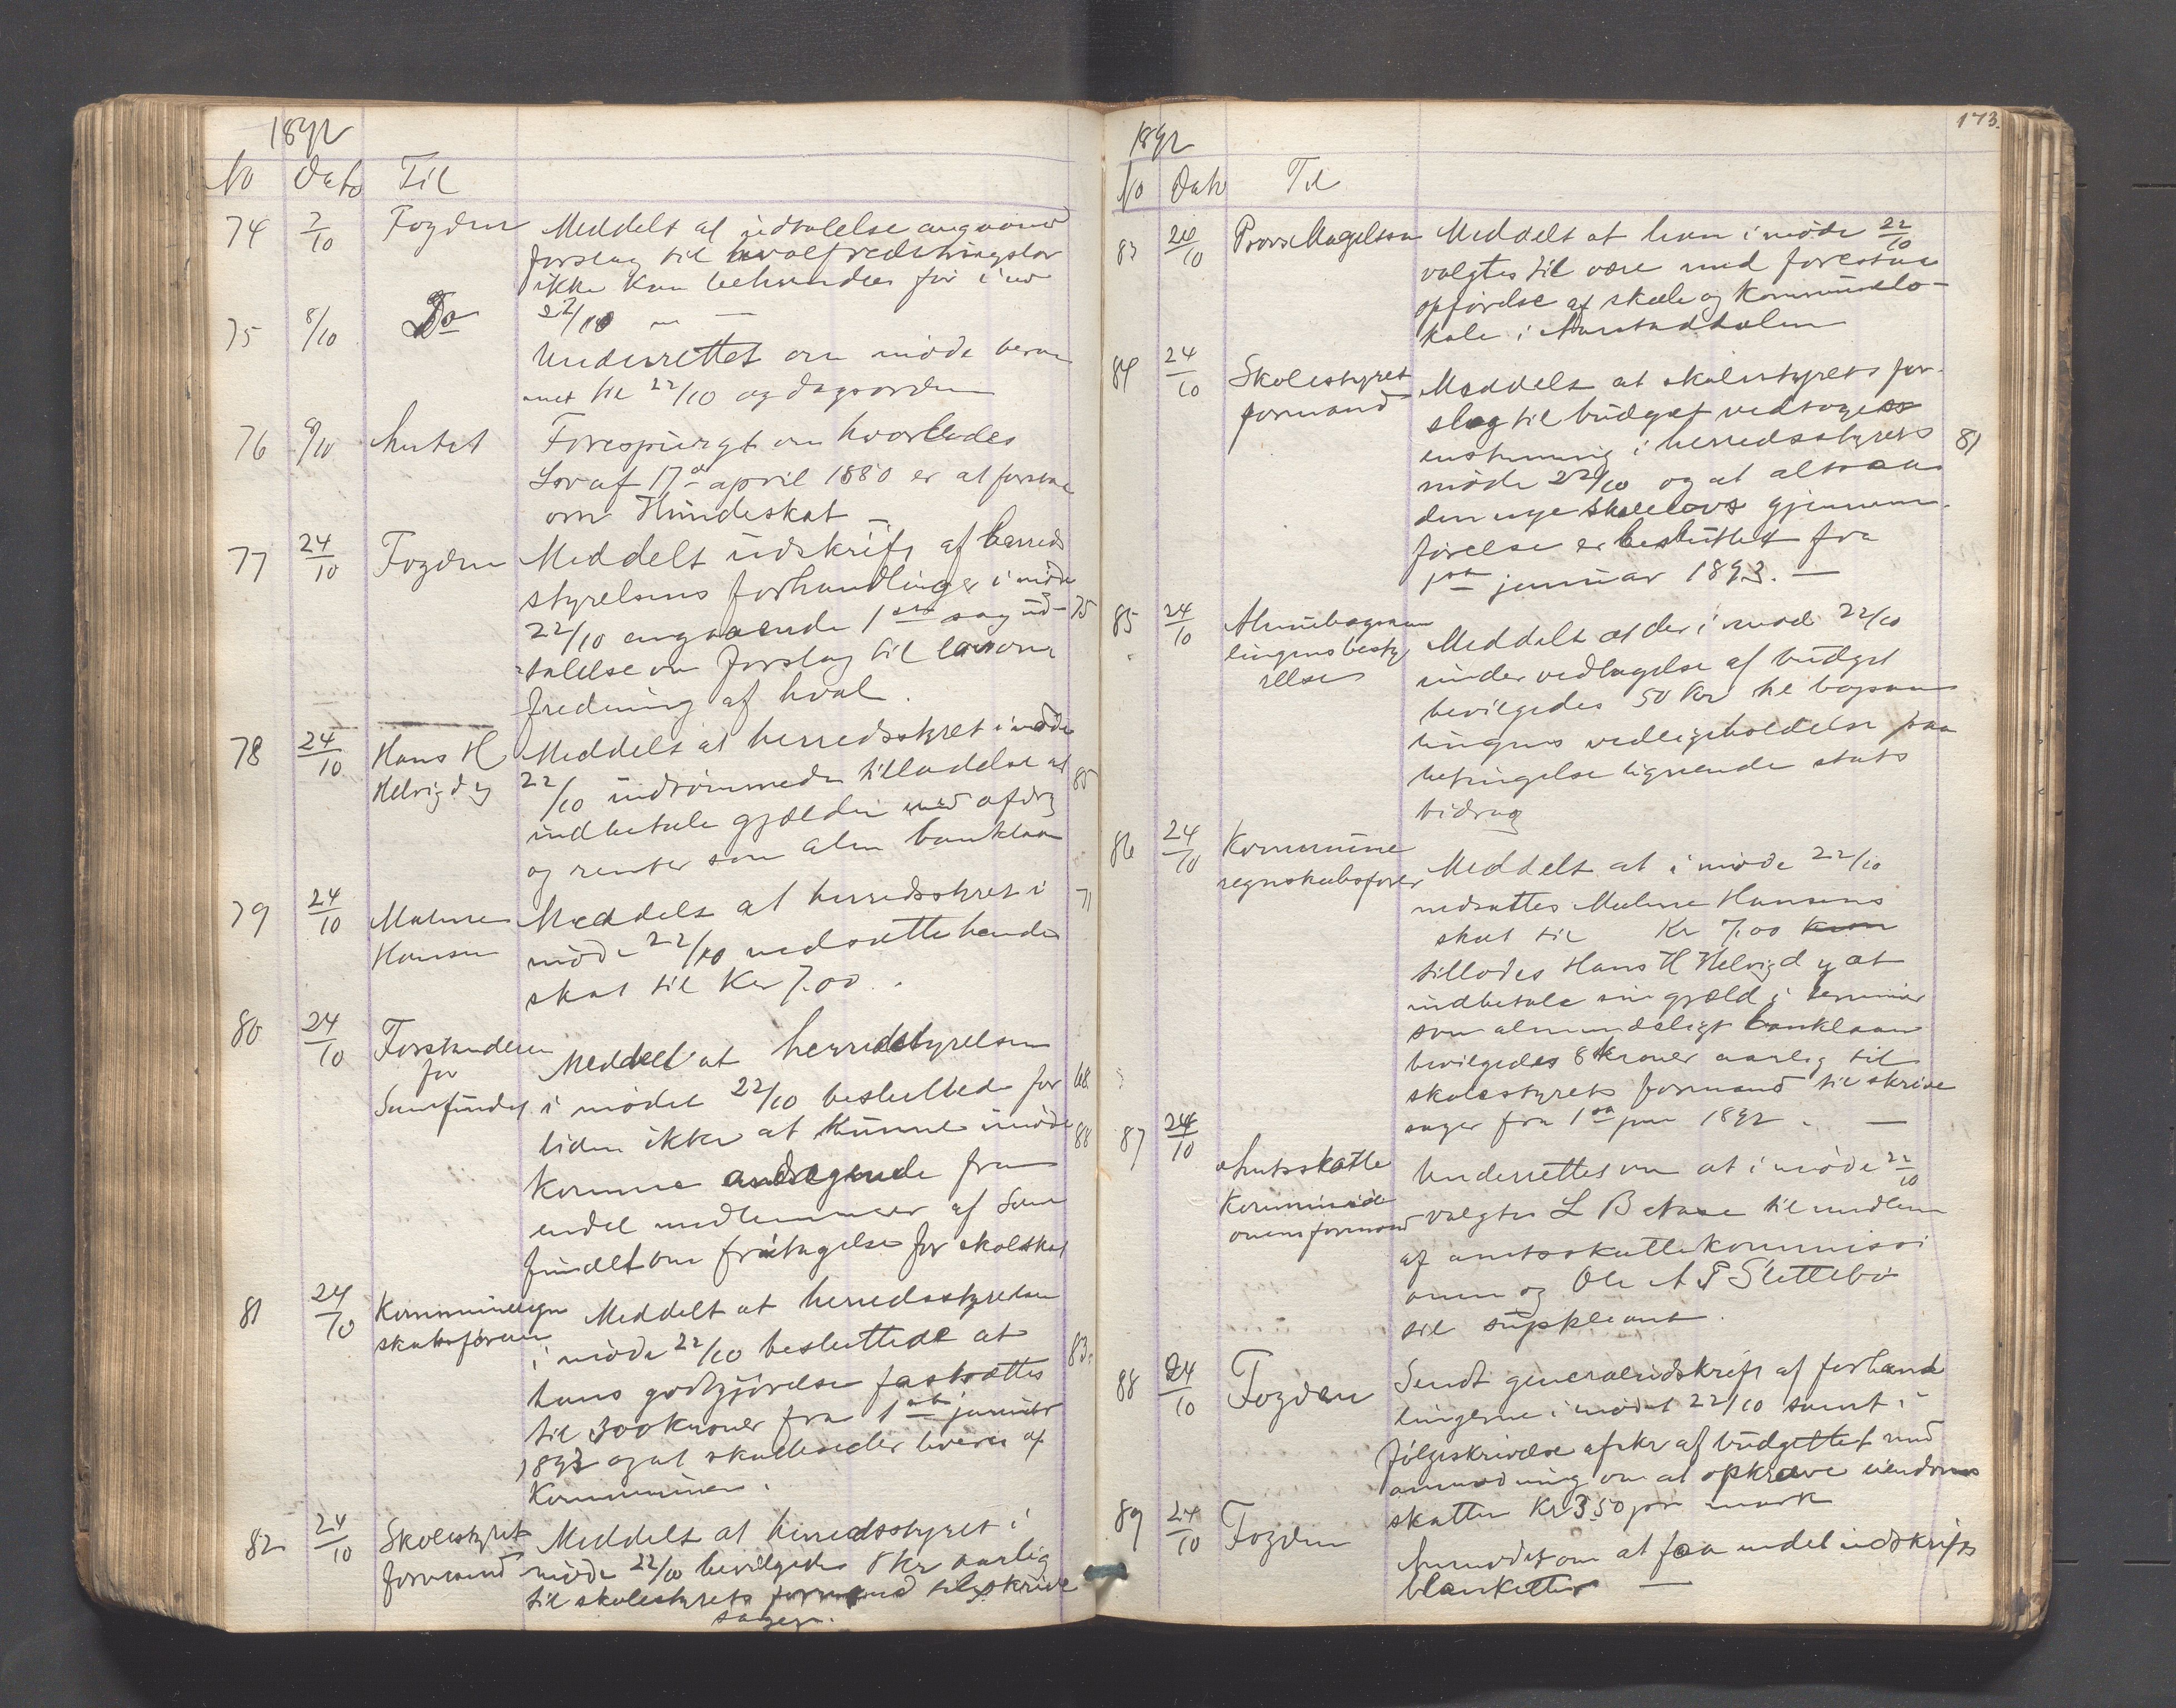 1892
No Dato Til
74 7/10 Fogden Meddelt at udtalelse angaaend
forslag til hvalfredningslov
ikke kan behandles før i mö
22/10 — —
75 8/10 Do
Underrettet om möde beram
met til 22/10 og dagsorden
76 9/10 Amtet Forespurgt om hvorledes
Lov af 17de april 1880 er at forstaa
om Hundeskat —
77 24/10 Fogden Meddelt udskrift af herreds
styrelsens forhandlinger i möde
22/10 angaaende 1ste sag ud- 75
talelse om forslag til lov om
fredning af hval.
78 24/10 Hans H Meddelt at herredsstyret i möde
Helvigdy 22/10 indrömmede tilladelse at 85
indbetale gjælden med afdrg
og renter som alm banklaan
79 24/10 Malene Meddelt at herredsstyret i 71
Hansen möde 22/10 nedsatte hendes
skat til Kr 7.00.
80 24/10 Forstanderen
for Meddelt at herredsstyrelsen
Samfundet i mödet 22/10 besluttede for 68
tiden ikke at kunne imöde 88
komme andragende fra
endel medlemmer af Sam
fundet om fritagelse for skoleskat
81 24/10 Kommuneregn Meddelt at herredsstyrelsen
skabsføreren i möde 22/10 besluttede at 83.
hans godtgjörelse fastsættes
til 300 kroner fra 1ste januar
1893 og at skattesedler leveres af
Kommunen.
82 24/10 Skolestyret Meddelt at herredsstyret i
formand möde 22/10 bevilgede 8 Kr aarlig
til skolestyrets formand til skrive
sager.
173.
1892
No Dato Til
83 24/10 Provst Magelssen Meddelt at han i möde 22/10
valgtes til være med forestaa
opförelse af skole og Kommunelo-
kale i Aarstaddalen
84 24/10 Skolestyret
formand Meddelt at skolestyrets for-
slag til budget vedtoges
enstemmig i herredsstyrets 81
möde 22/10 og at altsaa
den nye skolelovs gjennem-
förelse er besluttet fra
1ste januar 1893. —
85 24/10 Almuebogsam
lingens besty
relse Meddelt at der i möde 22/10
under vedtagelse af budget
bevilgedes 50 Kr til bogsam
lingens vedligeholdelse paa
betingelse lignende stats
bidrag
86 24/10 Kommune
regnskabsförer Meddelt at i möde 22/10
nedsattes Malene Hansens
skat til Kr 7.00
tillodes Hans H Helvigdy at
indbetale sin gjæld i terminer
som almindeligt banklaan
bevilgedes 8 kroner aarlig til
skolestyrets formand til skrive
sager fra 1ste jan 1892. —
87 24/10 Amtsskatte
Kommissi
onens formand Underrettet om at i möde 22/10
valgtes L B Aase til medlem
af amtsskattekommissi
onen og Ole A P Slettebö
til suppleant.
88 24/10 Fogden Sendt generaludskrift af forhand
lingerne i mödet 22/10 samt i
fölgeskrivelse afskr af budgettet med
anmodning om at opkræve eiendoms
skatten Kr 3 50 pr mark
89 24/10 Fogden
Anmodet om at faa endel udskrifts
blanketter —